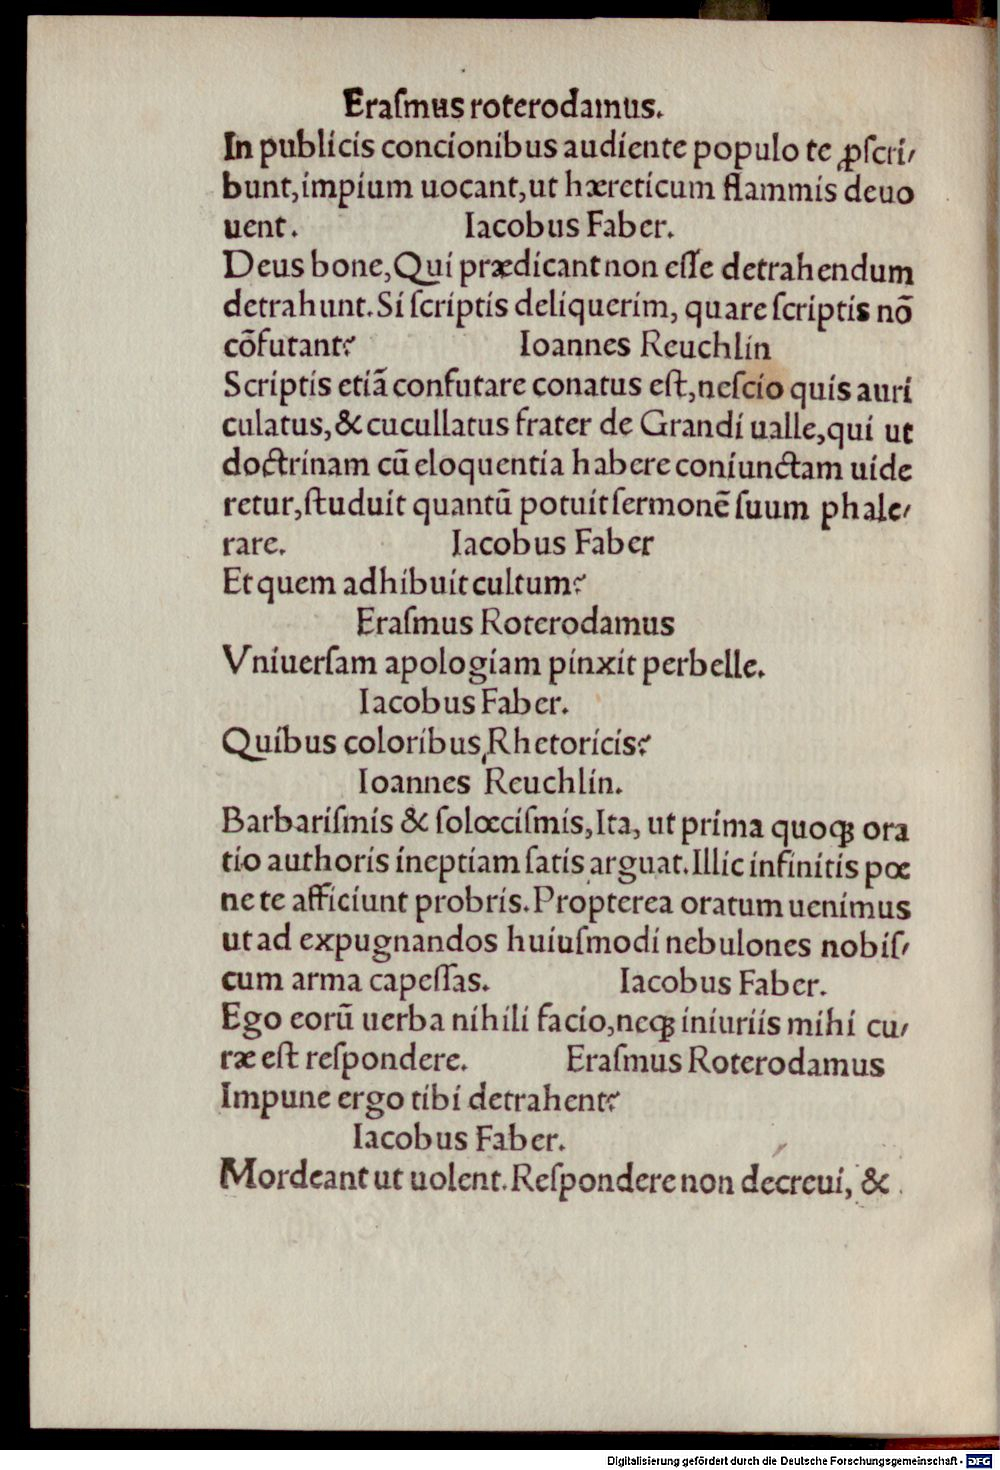 Eraſmus roterodamus.
In publicis concionibus audiente populo te ꝓſcri⸗
bunt,impium uocant,ut hæreticum flammis deuo
uent. Iacobus Faber.
Deus bone,Qui prædicant non eſſe detrahendum
detrahunt.Si ſcriptis deliquerim, quare ſcriptis nõ
cõfutant? Ioannes Reuchlin
Scriptis etiã confutare conatus eſt,neſcio quis auri
culatus,& cucullatus frater de Grandi ualle,qui ut
doctrinam cũ eloquentia habere coniunctam uide
retur,ſtuduit quantũ potuit ſermonẽ ſuum phale⸗
rare. Iacobus Faber
Et quem adhibuit cultum?
Eraſmus Roterodamus
Vniuerſam apologiam pinxit perbelle.
Iacobus Faber.
Quibus coloribus,Rhetoricis?
Ioannes Reuchlin.
Barbariſmis & ſolœciſmis,Ita, ut prima quoqꝫ ora
tio authoris ineptiam ſatis arguat.Illic infinitis pœ
ne te afficiunt probris.Propterea oratum uenimus
ut ad expugnandos huiuſmodi nebulones nobiſ⸗
cum arma capeſſas. Iacobus Faber.
Ego eorũ uerba nihili facio,neqꝫ iniuriis mihi cu⸗
ræ eſt reſpondere. Eraſmus Roterodamus
Impune ergo tibi detrahent?
Iacobus Faber.
Mordeant ut uolent.Reſpondere non decreui, &
Digitalisierung gefördert durch die Deutsche Forschungsgemeinschaft - DFG